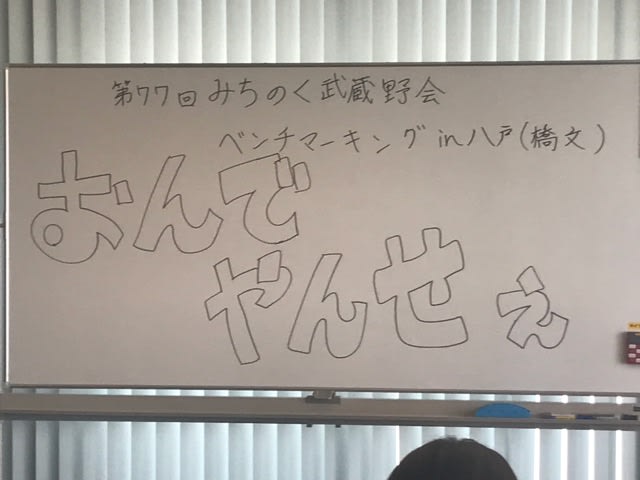 第77回 みちのく武蔵野会
ベンチマーキング in 八戸(橋文)
おんで
やんせぇ